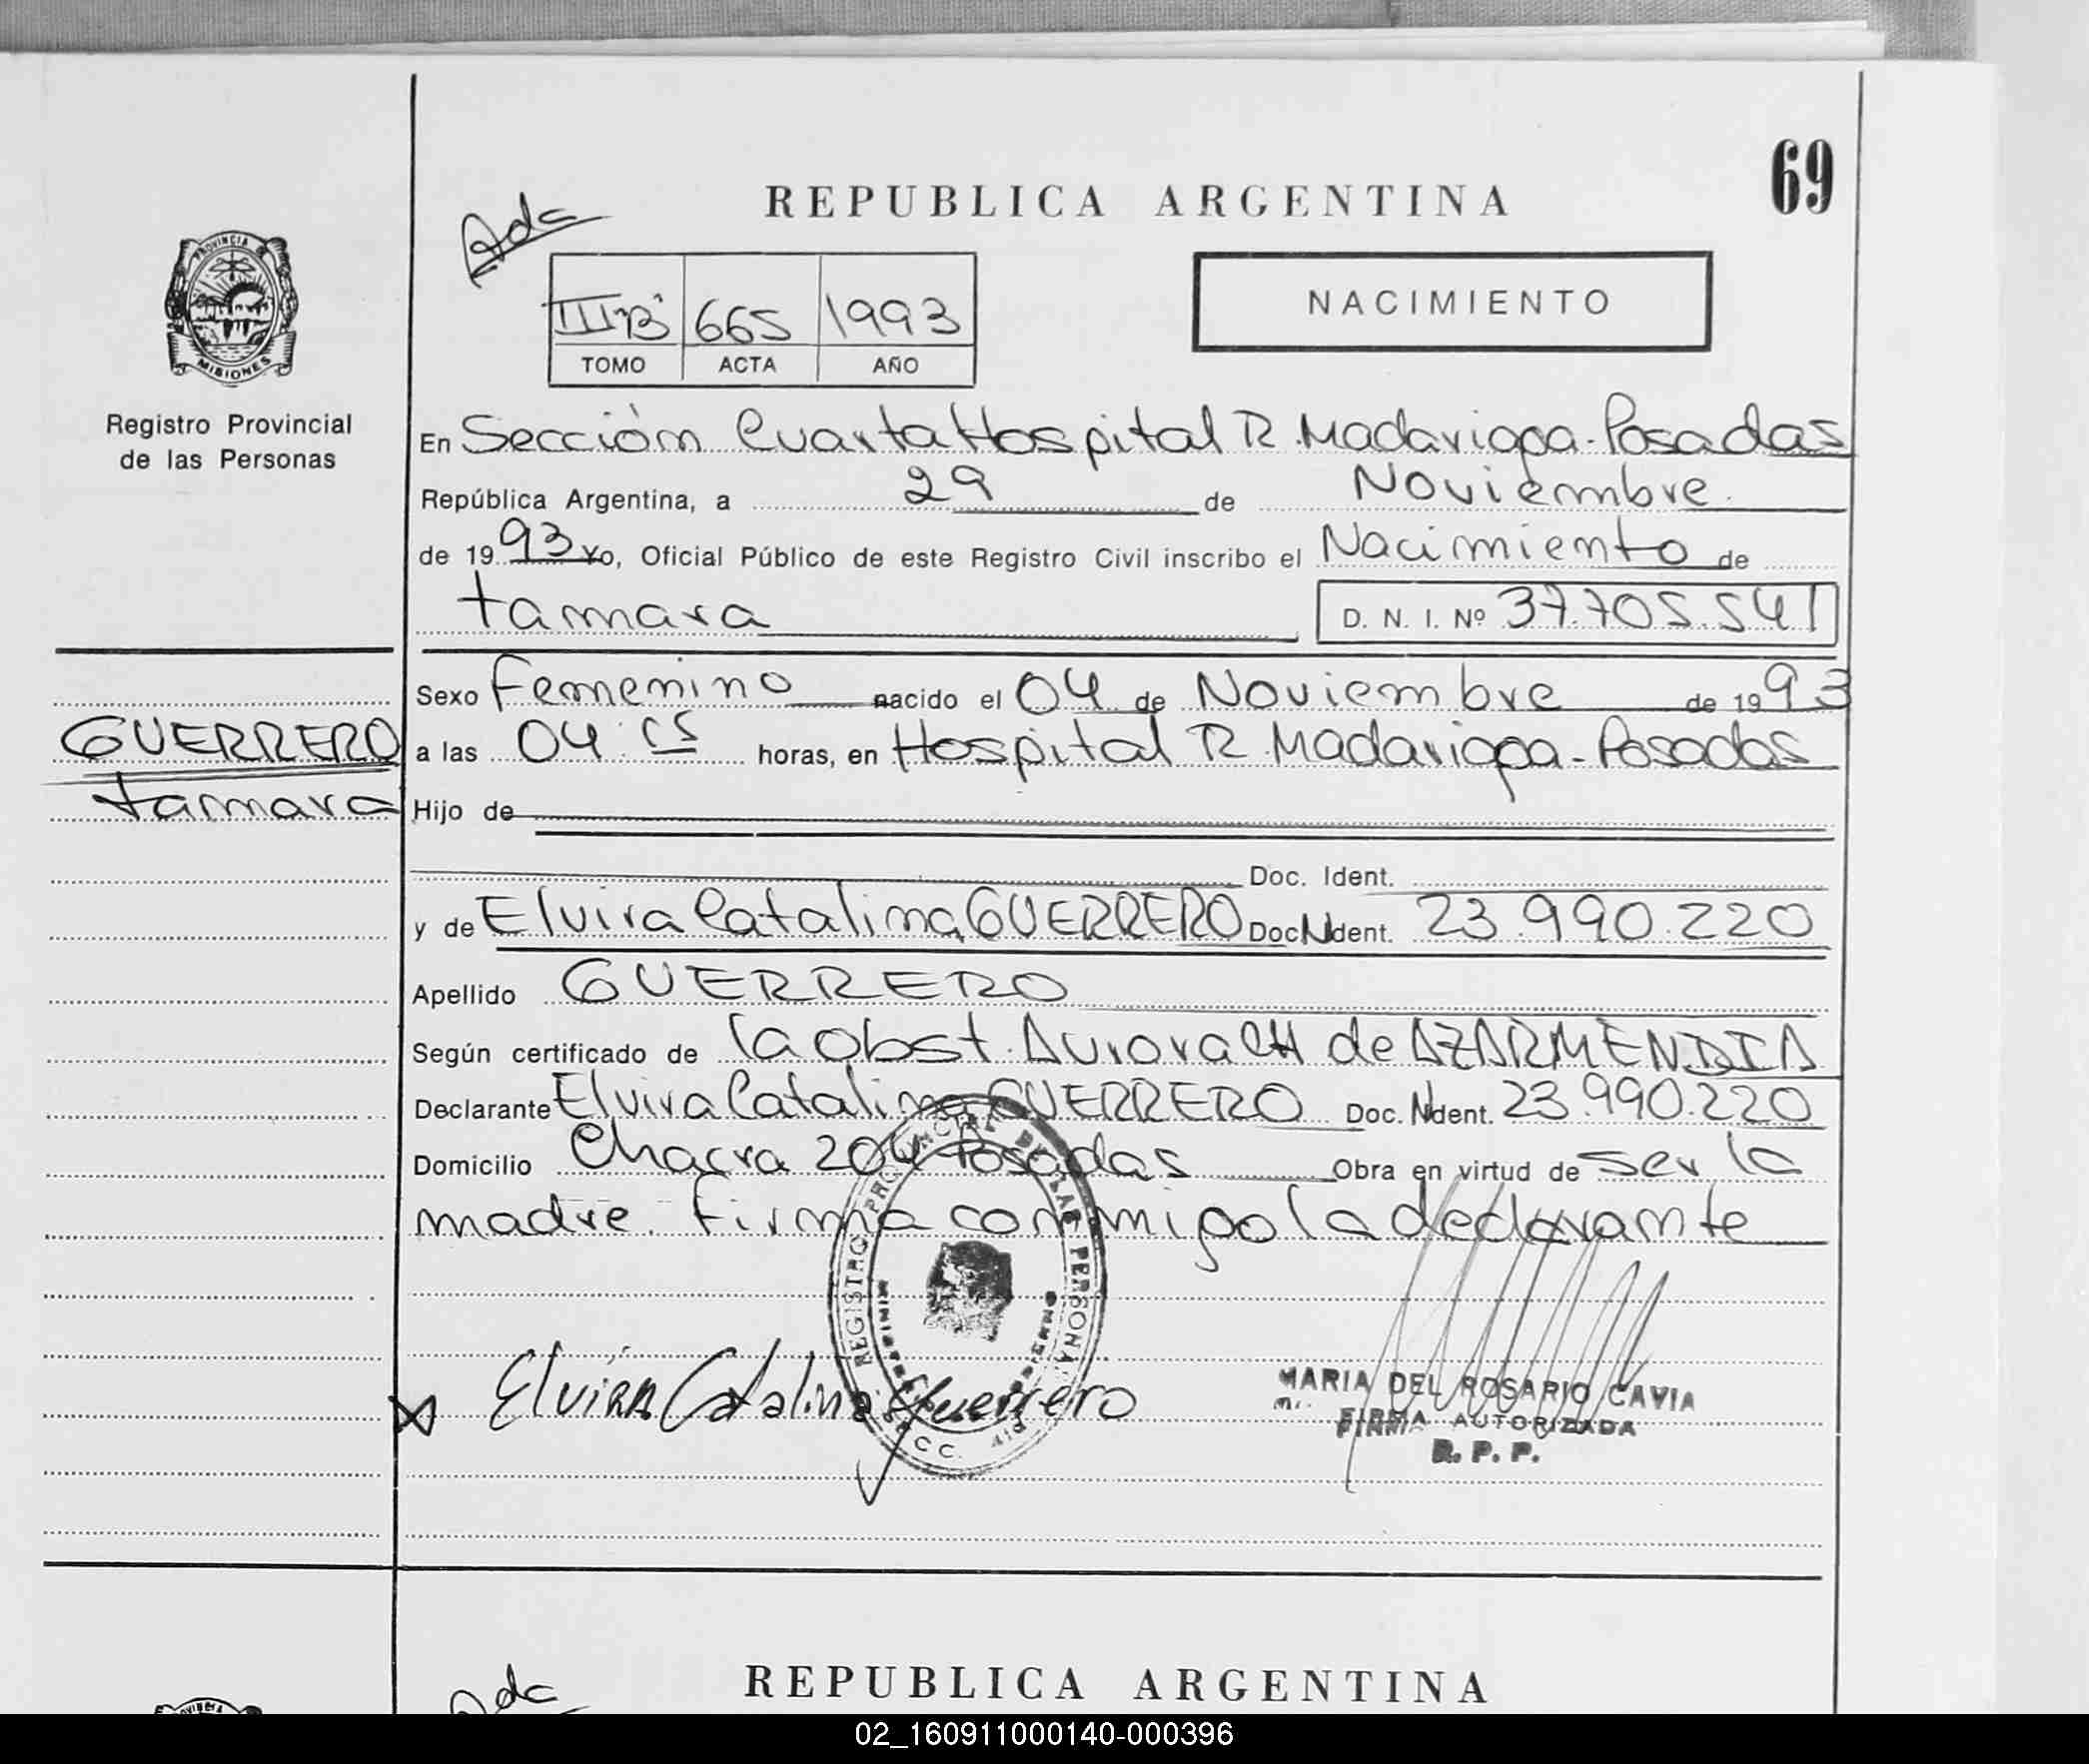 69
REPUBLICA ARGENTINA
Ada
PROVINCIA DE
MISIONES
Registro Provincial
de las Personas
III "B" 665 1993
TOMO ACTA AÑO
NACIMIENTO
En Sección Cuarta Hospital R. Madariaga - Posadas
República Argentina, a 29 de Noviembre
de 1993 Yo, Oficial Público de este Registro Civil inscribo el Nacimiento de
tamara
D. N. I. Nº 37.705.541
GUERRERO
tamara
Sexo Femenino nacido el 04 de Noviembre de 1993
a las 04:15 horas, en Hospital R. Madariaga - Posadas
Hijo de
Doc. Ident.
y de Elvira Catalina GUERRERO Doc. Ident. 23.990.220
Apellido GUERRERO
Según certificado de la Obst. Aurora CH de AZARMENDIA
Declarante Elvira Catalina GUERRERO Doc. Ident. 23.990.220
Domicilio Chacra 204 Posadas Obra en virtud de ser la
madre. Firma conmigo la declarante
REGISTRO PROVINCIAL DE LAS PERSONAS
Elvira Catalina Guerrero
MARIA DEL ROSARIO CAVIA
FIRMA AUTORIZADA
R. P. P.
Ada
REPUBLICA ARGENTINA
02_160911000140-000396